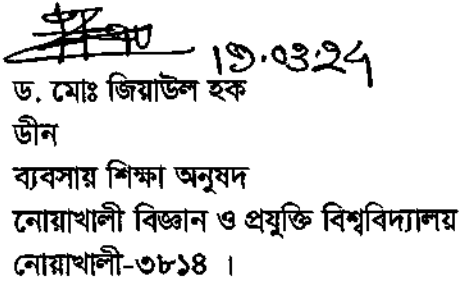 ১৭.০৩.২৪
ড. মোঃ জিয়াউল হক
ডীন
ব্যবসায় শিক্ষা অনুষদ
নোয়াখালী বিজ্ঞান ও প্রযুক্তি বিশ্ববিদ্যালয়
নোয়াখালী-৩৮১৪ ।